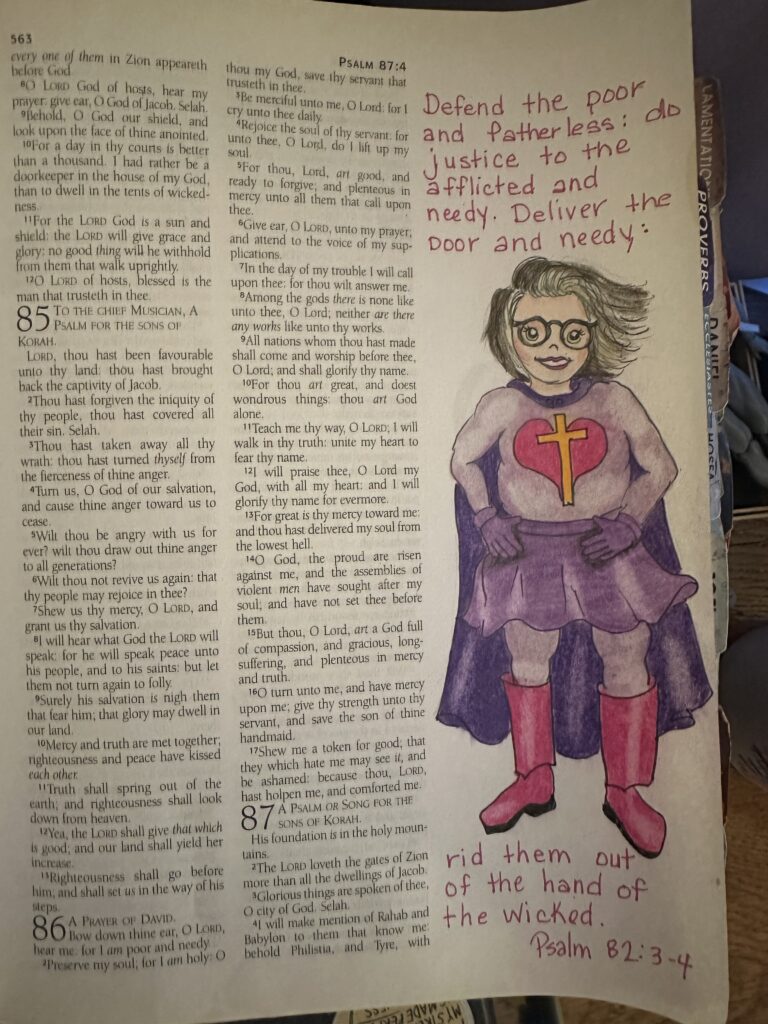 563
every one of them in Zion appeareth
before God.
8O LORD God of hosts, hear my
prayer: give ear, O God of Jacob. Selah.
9Behold, O God our shield, and
look upon the face of thine anointed.
10For a day in thy courts is better
than a thousand. I had rather be a
doorkeeper in the house of my God,
than to dwell in the tents of wicked-
ness.
11For the LORD God is a sun and
shield: the LORD will give grace and
glory: no good thing will he withhold
from them that walk uprightly.
12O LORD of hosts, blessed is the
man that trusteth in thee.
85 TO THE CHIEF MUSICIAN, A
PSALM FOR THE SONS OF
KORAH.
LORD, thou hast been favourable
unto thy land: thou hast brought
back the captivity of Jacob.
2Thou hast forgiven the iniquity of
thy people, thou hast covered all
their sin. Selah.
3Thou hast taken away all thy
wrath: thou hast turned thyself from
the fierceness of thine anger.
4Turn us, O God of our salvation,
and cause thine anger toward us to
cease.
5Wilt thou be angry with us for
ever? wilt thou draw out thine anger
to all generations?
6Wilt thou not revive us again: that
thy people may rejoice in thee?
7Shew us thy mercy, O LORD, and
grant us thy salvation.
8I will hear what God the LORD will
speak: for he will speak peace unto
his people, and to his saints: but let
them not turn again to folly.
9Surely his salvation is nigh them
that fear him; that glory may dwell in
our land.
10Mercy and truth are met together;
righteousness and peace have kissed
each other.
11Truth shall spring out of the
earth; and righteousness shall look
down from heaven.
12Yea, the LORD shall give that which
is good; and our land shall yield her
increase.
13Righteousness shall go before
him; and shall set us in the way of his
steps.
86 A PRAYER OF DAVID.
Bow down thine ear, O LORD,
hear me: for I am poor and needy.
2Preserve my soul; for I am holy: O
PSALM 87:4
thou my God, save thy servant that
trusteth in thee.
3Be merciful unto me, O Lord: for I
cry unto thee daily.
4Rejoice the soul of thy servant: for
unto thee, O Lord, do I lift up my
soul.
5For thou, Lord, art good, and
ready to forgive; and plenteous in
mercy unto all them that call upon
thee.
6Give ear, O LORD, unto my prayer;
and attend to the voice of my sup-
plications.
7In the day of my trouble I will call
upon thee: for thou wilt answer me.
8Among the gods there is none like
unto thee, O Lord; neither are there
any works like unto thy works.
9All nations whom thou hast made
shall come and worship before thee,
O Lord; and shall glorify thy name.
10For thou art great, and doest
wondrous things: thou art God
alone.
11Teach me thy way, O LORD; I will
walk in thy truth: unite my heart to
fear thy name.
12I will praise thee, O Lord my
God, with all my heart: and I will
glorify thy name for evermore.
13For great is thy mercy toward me:
and thou hast delivered my soul from
the lowest hell.
14O God, the proud are risen
against me, and the assemblies of
violent men have sought after my
soul; and have not set thee before
them.
15But thou, O Lord, art a God full
of compassion, and gracious, long-
suffering, and plenteous in mercy
and truth.
16O turn unto me, and have mercy
upon me; give thy strength unto thy
servant, and save the son of thine
handmaid.
17Shew me a token for good; that
they which hate me may see it, and
be ashamed: because thou, LORD,
hast holpen me, and comforted me.
87 A PSALM OR SONG FOR THE
SONS OF KORAH.
His foundation is in the holy moun-
tains.
2The LORD loveth the gates of Zion
more than all the dwellings of Jacob.
3Glorious things are spoken of thee,
O city of God. Selah.
4I will make mention of Rahab and
Babylon to them that know me:
behold Philistia, and Tyre, with
Defend the poor
and fatherless: do
justice to the
afflicted and
needy. Deliver the
poor and needy:
rid them out
of the hand of
the wicked.
Psalm 82:3-4
PROVERBS
DANIEL
HOSEA